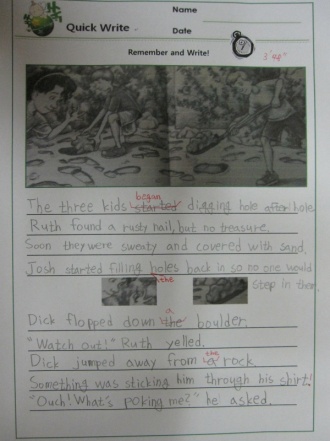 Name
Quick Write
Date
Remember and Write!
9
3'48"
began
The three kids started digging hole after hole
Ruth found a rusty nail, but no treasure.
Soon they were sweaty and covered with sand.
Josh started filling holes back in so no one would
the
step in them.
a
Dick flopped down the boulder.
"Watch out!" Ruth yelled.
the
Dick jumped away from a rock
Something was sticking him through his shirt!
"Ouch! What's poking me?" he asked.